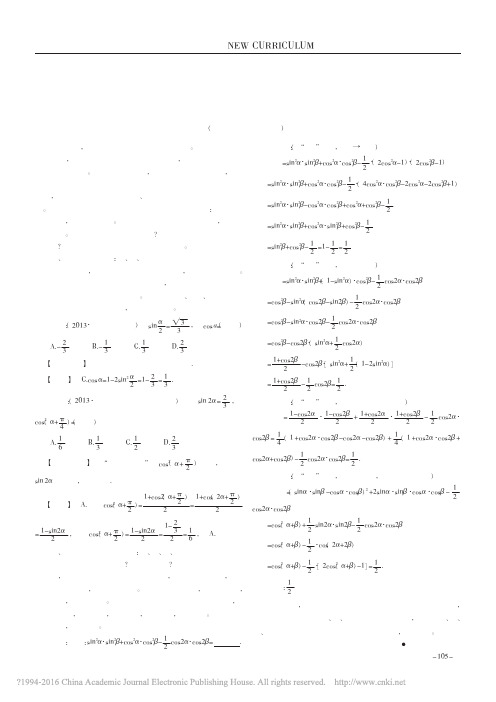 NEW CURRICULUM
(
)
( 2013· ) sin α/2 = √3/3 , cosα= ( )
A.-2/3 B.-1/3 C.1/3 D.2/3
【 】 .
【 】 C.cosα=1-2sin²α/2=1-2/3=1/3.
( 2013· ) sin 2α=2/3 ,
cos²(α+π/4)=( )
A.1/6 B.1/3 C.1/2 D.2/3
【 】 “ ” cos²(α+π/2) ,
sin 2α , .
【 】 A. cos²(α+π/2)=1+cos2(α+π/2)/2=1+cos(2α+π/2)/2
=1-sin2α/2 , cos²(α+π/2)=1-sin2α/2=(1-2/3)/2=1/6 , A.
: :sin²α·sin²β+cos²α·cos²β-1/2cos2α·cos2β= .
( “ ” , → )
=sin²α·sin²β+cos²α·cos²β-1/2·(2cos²α-1)·(2cos²β-1)
=sin²α·sin²β+cos²α·cos²β-1/2·(4cos²α·cos²β-2cos²α-2cos²β+1)
=sin²α·sin²β-cos²α·cos²β+cos²α+cos²β-1/2
=sin²α·sin²β+cos²α·sin²β+cos²β-1/2
=sin²β+cos²β-1/2=1-1/2=1/2
( “ ” , )
=sin²α·sin²β+(1-sin²α)·cos²β-1/2cos2α·cos2β
=cos²β-sin²α(cos2β-sin2β)-1/2cos2α·cos2β
=cos²β-sin²α·cos2β-1/2cos2α·cos2β
=cos²β-cos2β·(sin²α+1/2cos2α)
=1+cos2β/2-cos2β·[sin²α+1/2(1-2sin²α)]
=1+cos2β/2-1/2cos2β=1/2.
( “ ” , )
=1-cos2α/2·1-cos2β/2+1+cos2α/2·1+cos2β/2-1/2cos2α·
cos2β=1/4(1+cos2α·cos2β-cos2α-cos2β)+1/4(1+cos2α·cos2β+
cos2α+cos2β)-1/2cos2α·cos2β=1/2.
( “ ” , , )
=(sinα·sinβ-cosα·cosβ)²+2sinα·sinβ·cosα·cosβ-1/2
cos2α·cos2β
=cos²(α+β)+1/2sin2α·sin2β-1/2cos2α·cos2β
=cos²(α+β)-1/2·cos(2α+2β)
=cos²(α+β)-1/2·[2cos²(α+β)-1]=1/2.
:1/2
-105-
?1994-2016 China Academic Journal Electronic Publishing House. All rights reserved. http://www.cnki.net